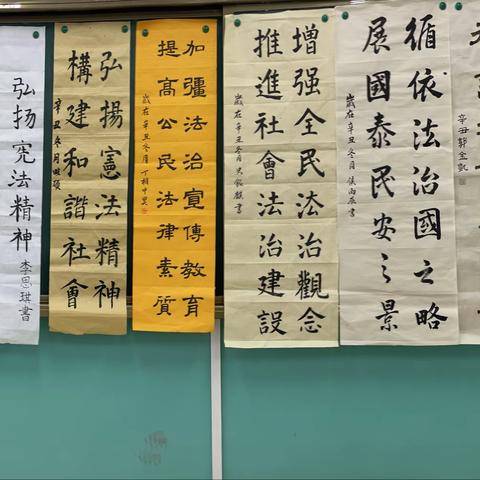 弘扬宪法精神
李思琪書
弘揚憲法精神
構建和諧社會
辛丑冬月
加彊法治宣傳教育
提高公民法律素質
歲在辛丑冬月
增强全民法治觀念
推進社會法治建設
歲在辛丑冬月
循依法治國之略
展國泰民安之景
歲在辛丑冬月
辛丑郭金凱